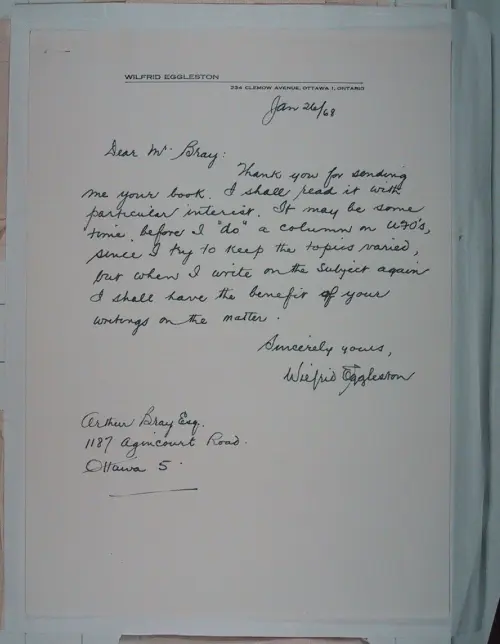 WILFRID EGGLESTON
234 CLEMOW AVENUE, OTTAWA 1, ONTARIO
Jan 26/68
Dear Mr. Bray:
Thank you for sending
me your book. I shall read it with
particular interest. It may be some
time before I "do" a column on UFO's,
since I try to keep the topics varied,
but when I write on the subject again
I shall have the benefit of your
writings on the matter.
Sincerely yours,
Wilfrid Eggleston
Arthur Bray Esq.
1187 Agincourt Road.
Ottawa 5.